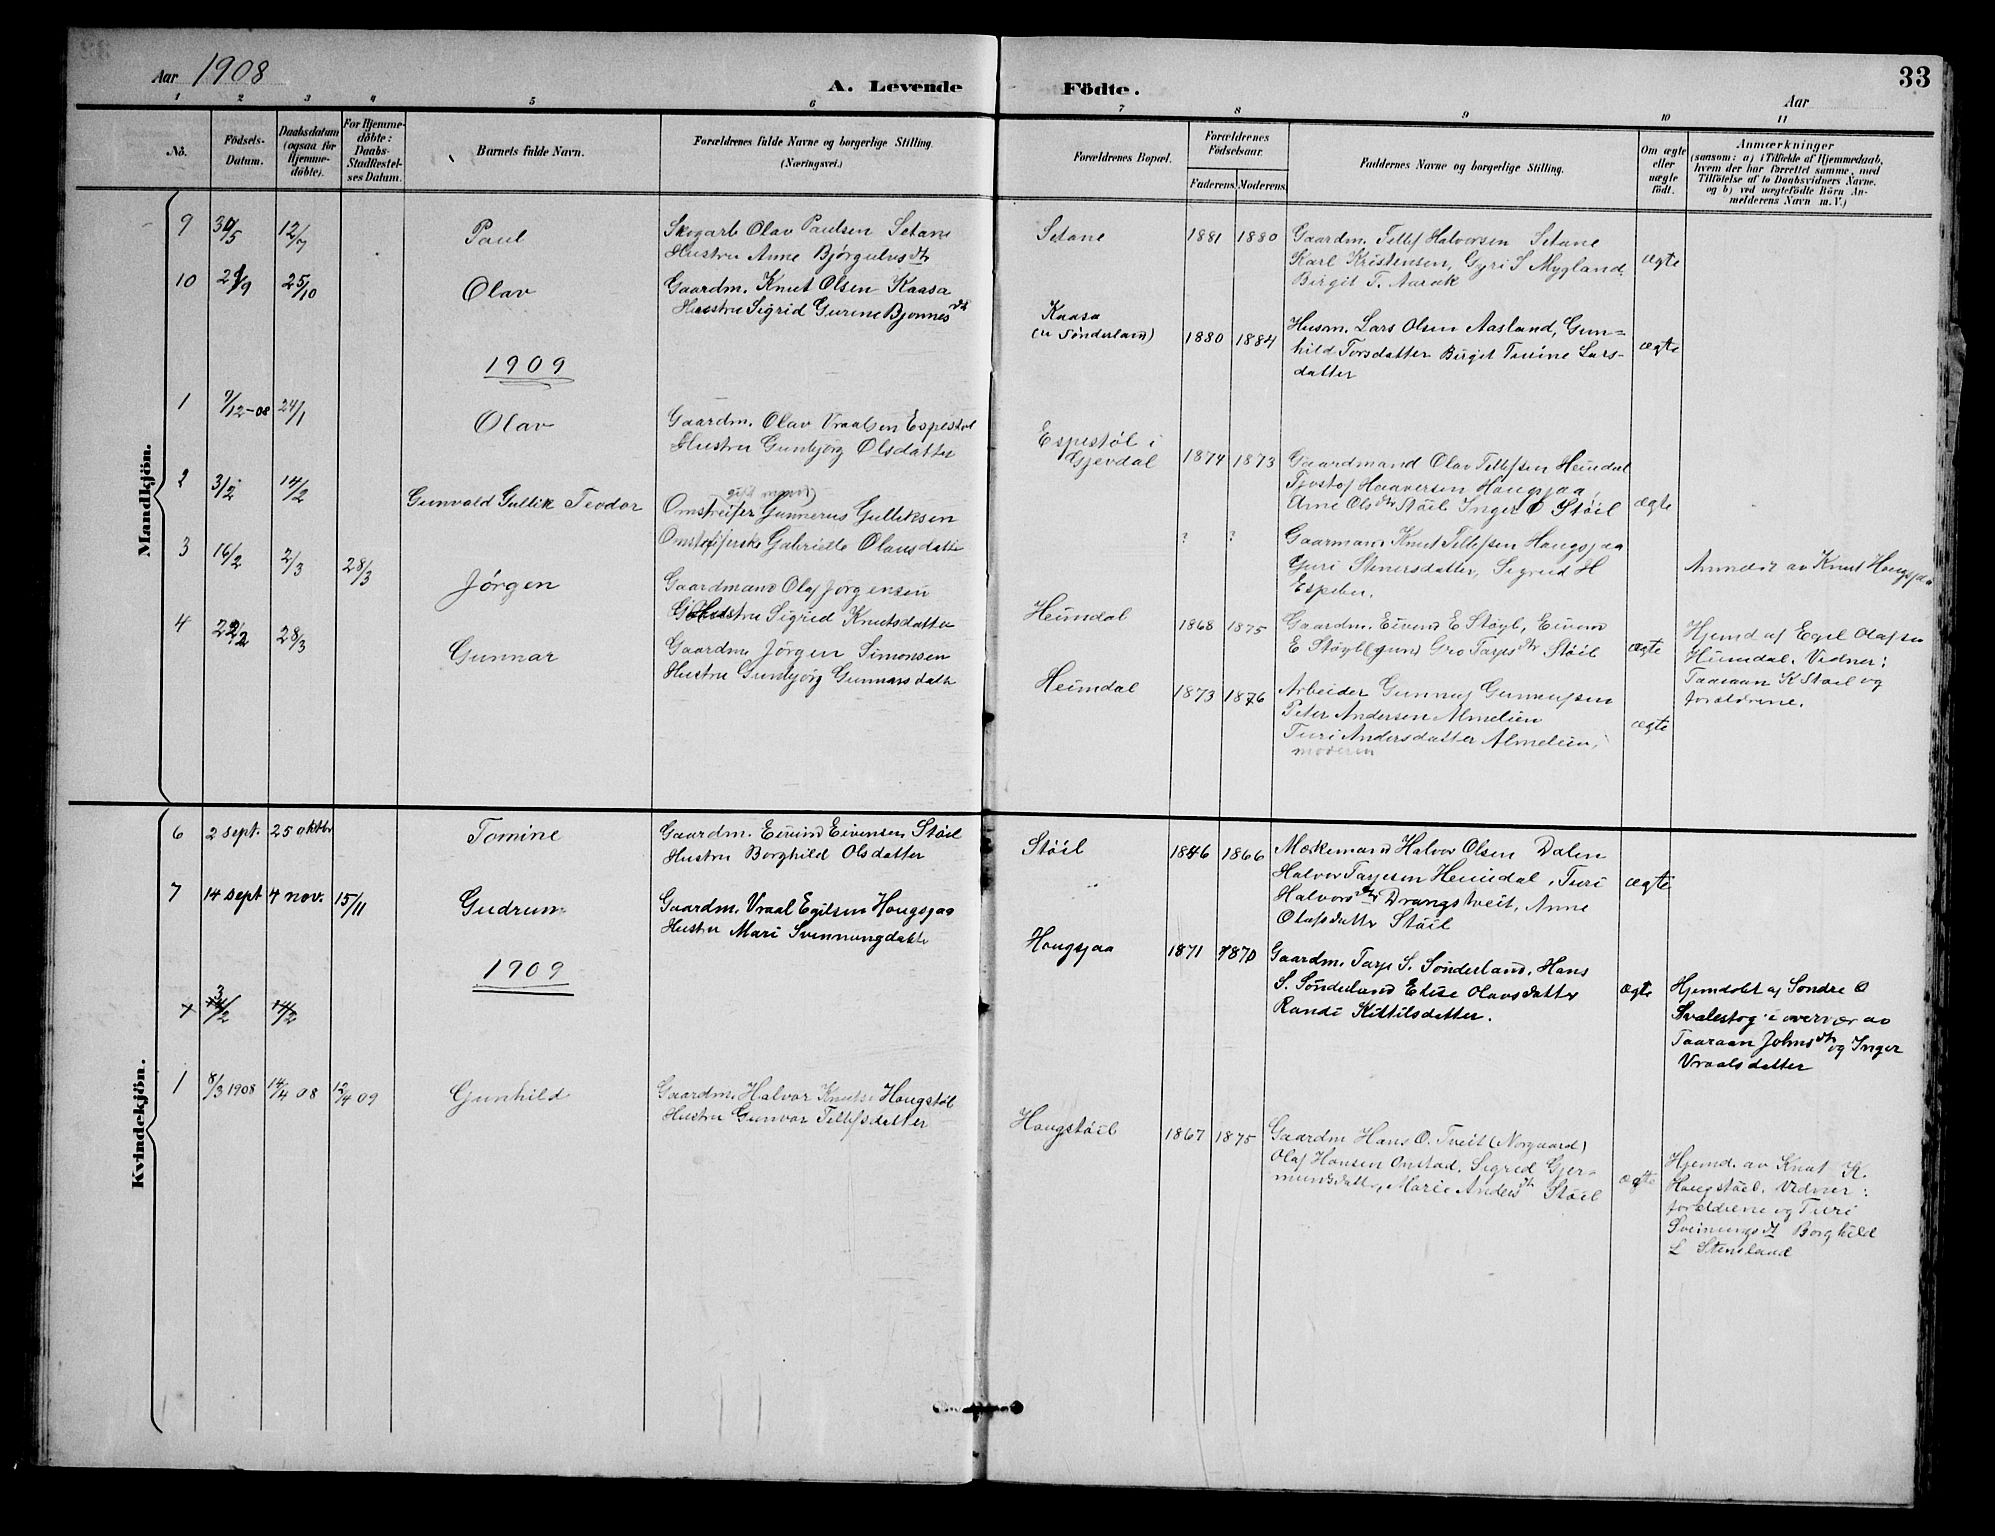 33
Aar 1908
A. Levende
Födte.
Aar
1 2 3 4 5 6 7 8 9 10 11
No.
Födsels-
Datum.
Daabsdatum
(ogsaa for
Hjemme-
döbte).
For Hjemme-
döbte:
Daabs-
Stadfestel-
ses Datum.
Barnets fulde Navn.
Forældrenes fulde Navne og borgerlige Stilling.
(Næringsvei.)
Forældrenes Bopæl.
Forældrenes
Födselsaar.
Faderens. Moderens.
Faddernes Navne og borgerlige Stilling.
Om ægte
eller
uægte
födt.
Anmærkninger
(saasom: a) i Tilfælde af Hjemmedaab,
hvem der har forrettet samme, med
Tilföielse af to Daabsvidners Navne.
og b) ved uægtefödte Börn An-
melderens Navn m. V.)
Mandkjön.
9 30/5 12/7 Paul
Skogarb Olav Paulsen Setane
Hustru Anne Bjørgulvsdtr
Setane 1881 1880
Gaardm. Tellef Halvorsen Setane
Karl Kristensen, Gyri S Mygland
Birgit T. Aarak
ægte
10 25/10 Olav
Gaardm. Knut Olsen Kaasa
Hustru Sigrid Gurine Bjonnesdtr
Kaasa
(u Sønderland)
1880 1884
Husm. Lars Olsen Aasland, Gun=
hild Torsdatter Birgit Tomine Lars-
datter
ægte
1909
1 9/12-08 24/1 Olav
Gaardm. Olav Vraalsen Espestøl
Hustru Gunbjørg Olsdatter
Espestøl i
Gjevdal
1874 1873
Gaardmand Olav Tellefsen Heimdal
Tjostof Haaversen Hougsjaa,
Anne Olsdtr Støil Inger O Støil
ægte
2 3/2 14/2 Gunvald Gullik Teodor
gift mand)
Omstreifer Gunnerus Gulliksen
Omstreiferske Gabrielle Olausdatte
? ?
Gaarmand Knut Tellefsen Hougsjaa
Guri Stenersdatter, Sigrid H
Espeber.
Anmeldt av Knut Hougsjaa
3 16/2 2/3 28/3 Jørgen
Gaardmand Olaf Jørgensen
Hustru Sigrid Knutsdatter
Heimdal 1868 1875
Gaardm. Eivind E Støyl, Eivind
E Støyl (gund Gro Tarjesdtr Støil
ægte
Hjemd af Egil Olafsen
Heimdal. Vidner:
Taaraan K Støil og
forældrene.
4 22/2 28/3 Gunnar
Gaardm. Jørgen Simonsen
Hustru Gunbjørg Gunnarsdatte
Heimdal 1873 1876
Arbeider Gunnuf Gunnufsen
Peter Andersen Almelien
Turi Andersdatter Almelien,
moderen
ægte
Kvindekjön.
6 2 sept. 25 oktbr Tomine
Gaardm. Eivind Eivensen Støil
Hustru Borghild Olsdatter
Støil 1846 1866
Mækemand Halvor Olsen Dalen
Halvor Tarjesen Heimdal, Turi
Halvorsdtr Drangstveit, Anne
Olafsdatter Støil
ægte
7 14 sept 4 nov. 15/11 Gudrun
Gaardm. Vraal Egilsen Hougsjaa
Hustru Mari Svennungdatte
Hougsjaa 1871 1870
Gaardm. Tarje S. Sønderland, Hans
S. Sønderland Elise Olavsdatter
Randi Kittilsdatter.
ægte
Hjemdøbt af Søndre O
Svalestog i overvær av
Taaraan Johnsdtr og Inger
Vraalsdatter
1909
14/2
1 8/3 1908 14/4 08 12/4 09 Gunhild
Gaardm. Halvor Knuts. Hougstøl
Hustru Gunvor Tellefsdatter
Hougstøil 1867 1875
Gaardm Hans O. Tveit (Norgaard)
Olaf Hansen Onstad, Sigrid Gjer-
mundsdatte, Marie Andersdtr Støil
ægte
Hjemd. av Knut K.
Hougstøil. Vidner:
forældrene og Turi
Sveinungsdt Borghild
L Steneland